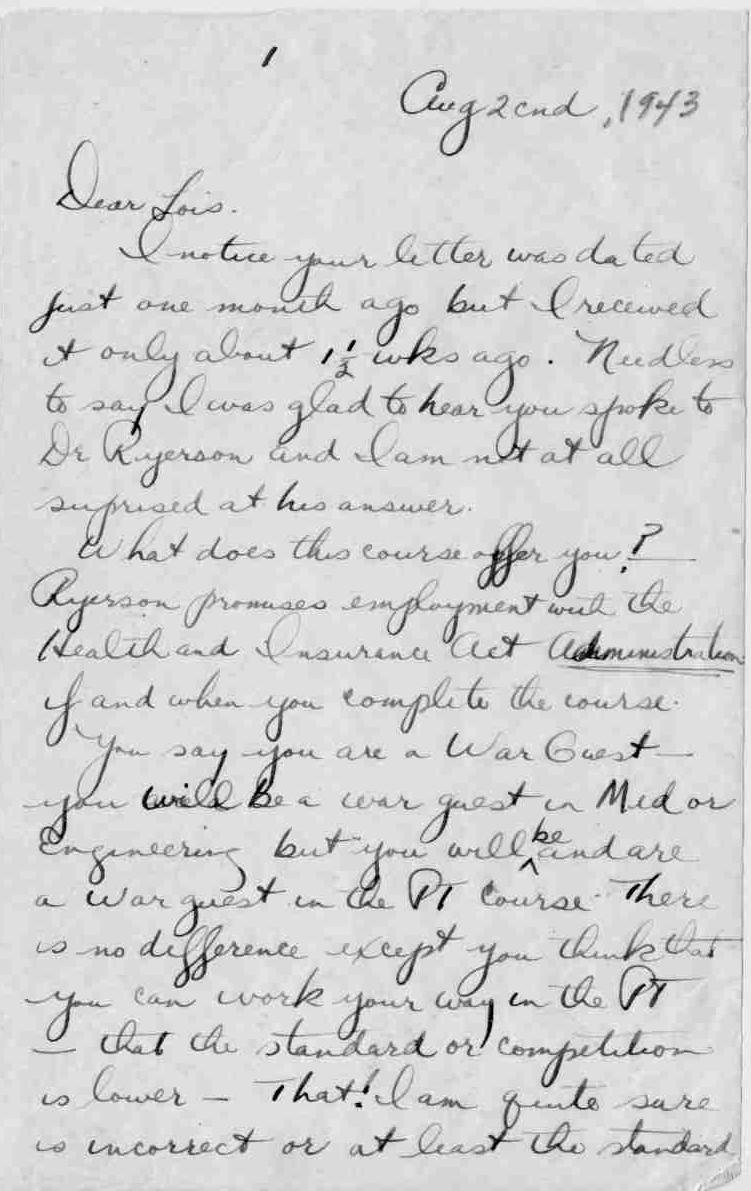 1
Aug 2cnd, 1943
Dear Lois.
I notice your letter was dated
just one month ago but I received
it only about 1 1/2 wks ago. Needless
to say I was glad to hear you spoke to
Dr Ryerson and I am not at all
suprised at his answer.
What does this course offer you?
Ryerson promises employment with the
Health and Insurance Act Administration
if and when you complete the course.
You say you are a War Guest —
you will be a war guest in Med or
Engineering but you will be and are
a War guest in the PT Course. There
is no difference except you think that
you can work your way in the PT
— that the standard or competition
is lower — That! I am quite sure
is incorrect or at least the standard